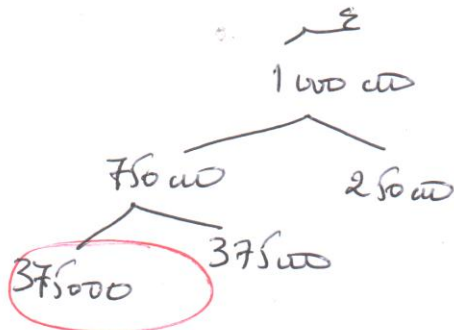 ع
1 000 000
750 000 250 000
375000 375000